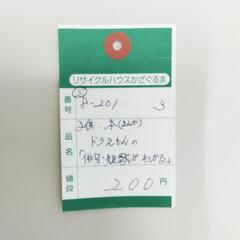 リサイクルハウスかざぐるま
番号 8-201 3
品名 子供 本(まんが)
ドラえもんの
「俳句・短歌がわかる」
値段 200円